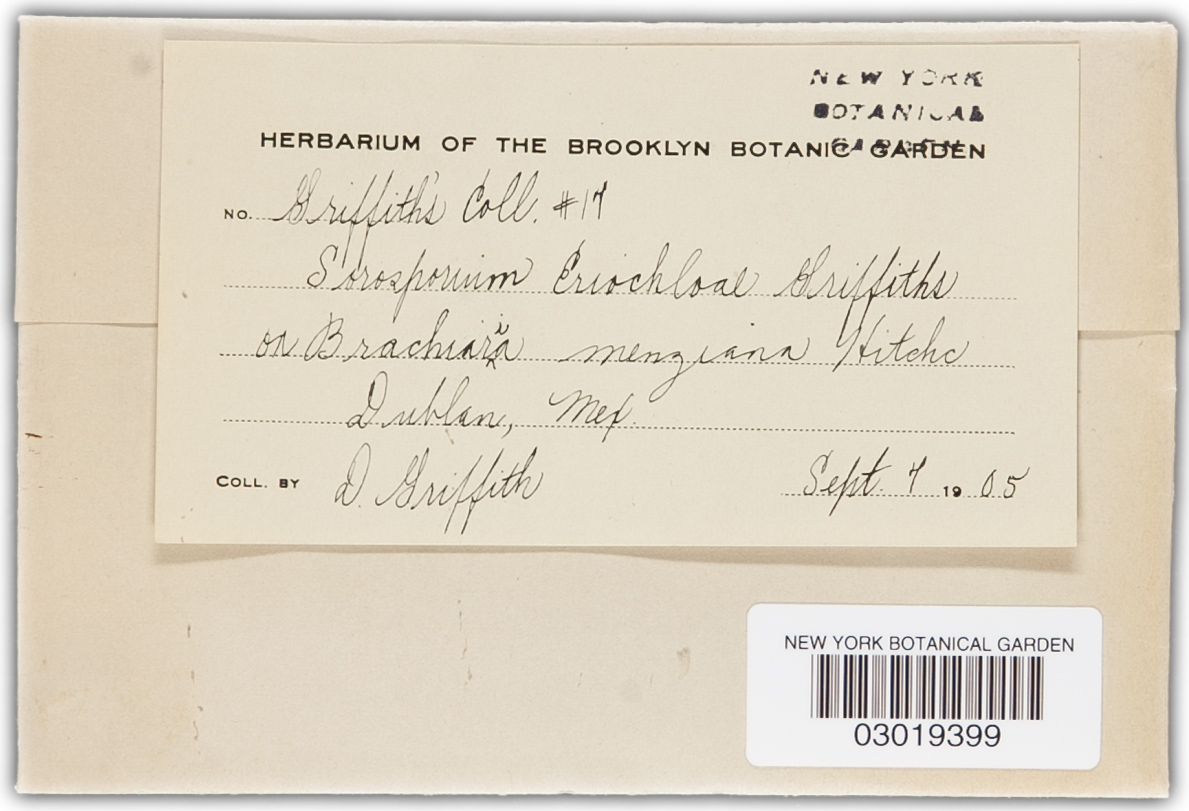 NEW YORK
BOTANICAL
GARDEN
HERBARIUM OF THE BROOKLYN BOTANIC GARDEN
NO. Griffith's Coll. #17
Sorosporium Eriochloae Griffiths
on Brachiaria menziana Hitchc
Dublan, Mex.
COLL. BY D. Griffith Sept. 7 1905
NEW YORK BOTANICAL GARDEN
03019399